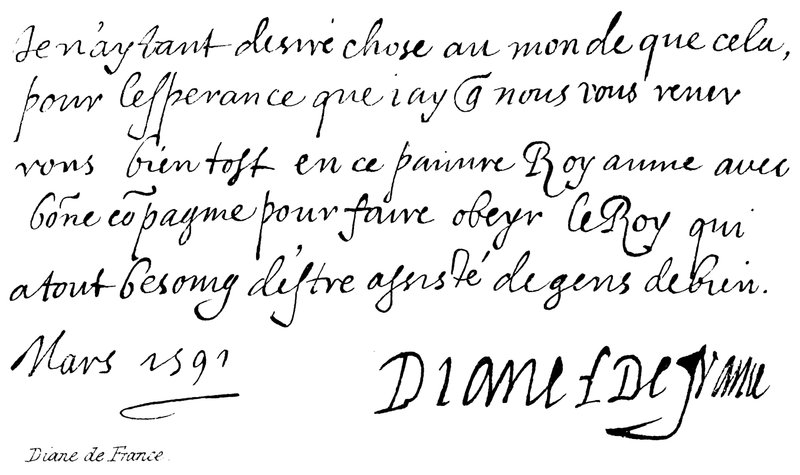 Je n'ay tant desiré chose au monde que cela,
pour lesperance que iay q̃ nous vous rever
rons bien tost en ce pauvre Royaume avec
bõne cõpagnie pour faire obeyr le Roy qui
a tout besoing d'estre assisté de gens de bien.
Mars 1591
Diane L DE france
Diane de France.